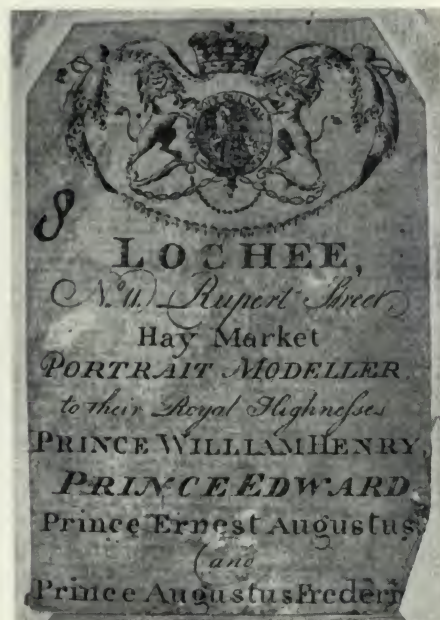 8
LOCHEE,
No. 11. Rupert Street
Hay Market
PORTRAIT MODELLER
to their Royal Highnesses
PRINCE WILLIAM HENRY,
PRINCE EDWARD
Prince Ernest Augustus
(and
Prince Augustus Frederi